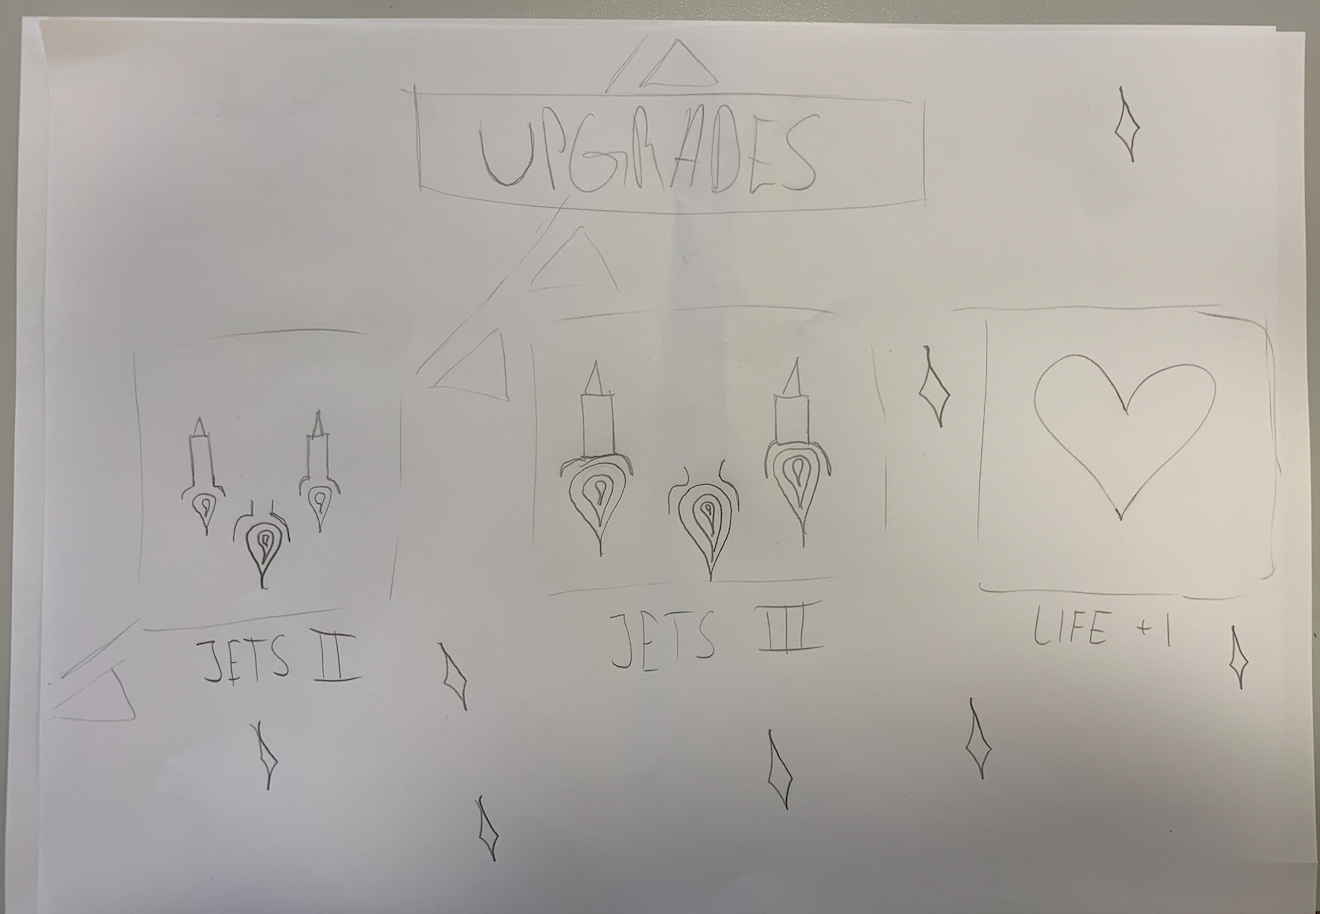 UPGRADES
JETS II
JETS III
LIFE +1